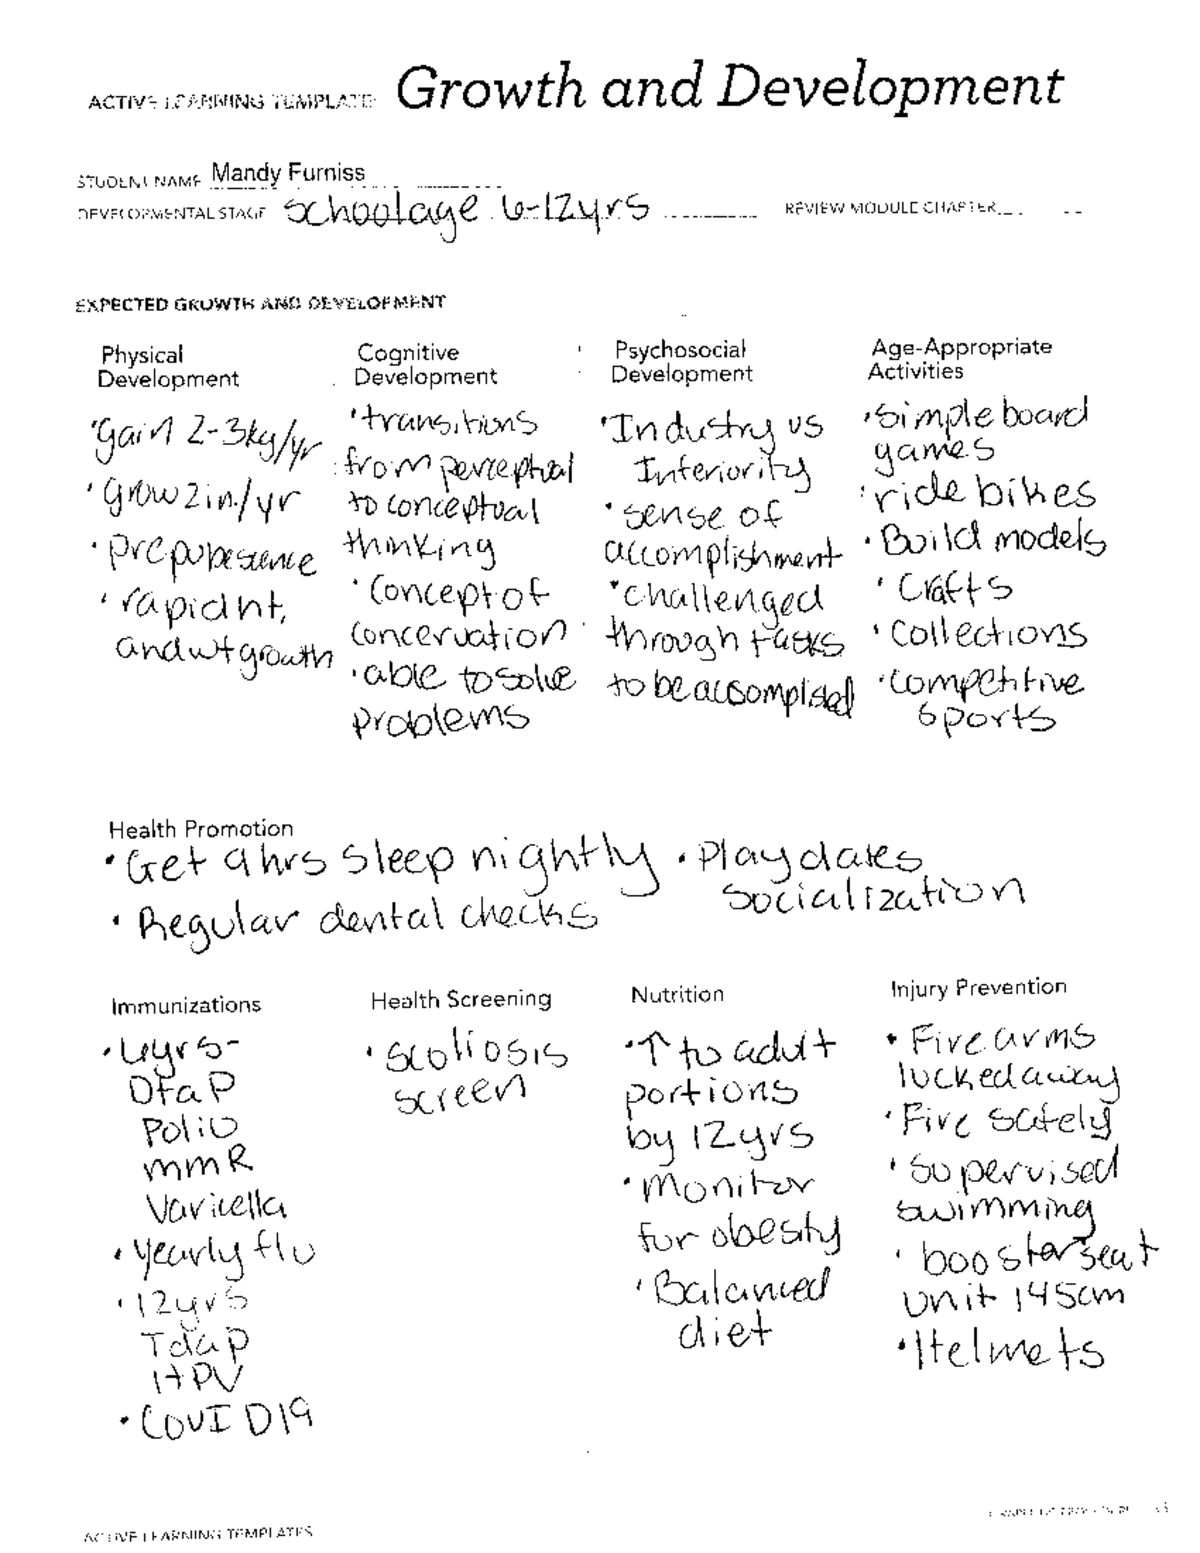 ACTIVE LEARNING TEMPLATE: Growth and Development
STUDENT NAME Mandy Furniss
DEVELOPMENTAL STAGE schoolage 6-12yrs REVIEW MODULE CHAPTER
EXPECTED GROWTH AND DEVELOPMENT
Physical
Development
• gain 2-3kg/yr
• grow 2in./yr
• prepubesence
• rapid ht,
and wt growth
Cognitive
Development
• transitions
from perceptual
to conceptual
thinking
• Concept of
concervation
• able to solve
problems
Psychosocial
Development
• Industry vs
Inferiority
• sense of
accomplishment
• challenged
through tasks
to be accomplished
Age-Appropriate
Activities
• simple board
games
• ride bikes
• Build models
• Crafts
• Collections
• competitive
sports
Health Promotion
• Get 9hrs sleep nightly • Playdates
socialization
• Regular dental checks
Immunizations
DTaP
Polio
mmR
Varicella
• yearly flu
• 12yrs
Tdap
HPV
• COVID19
Health Screening
• scoliosis
screen
Nutrition
• ↑ to adult
portions
by 12yrs
• monitor
for obesity
• Balanced
diet
Injury Prevention
• Firearms
locked away
• Fire safety
• supervised
swimming
• booster seat
unit 145cm
• Helmets
ACTIVE LEARNING TEMPLATES